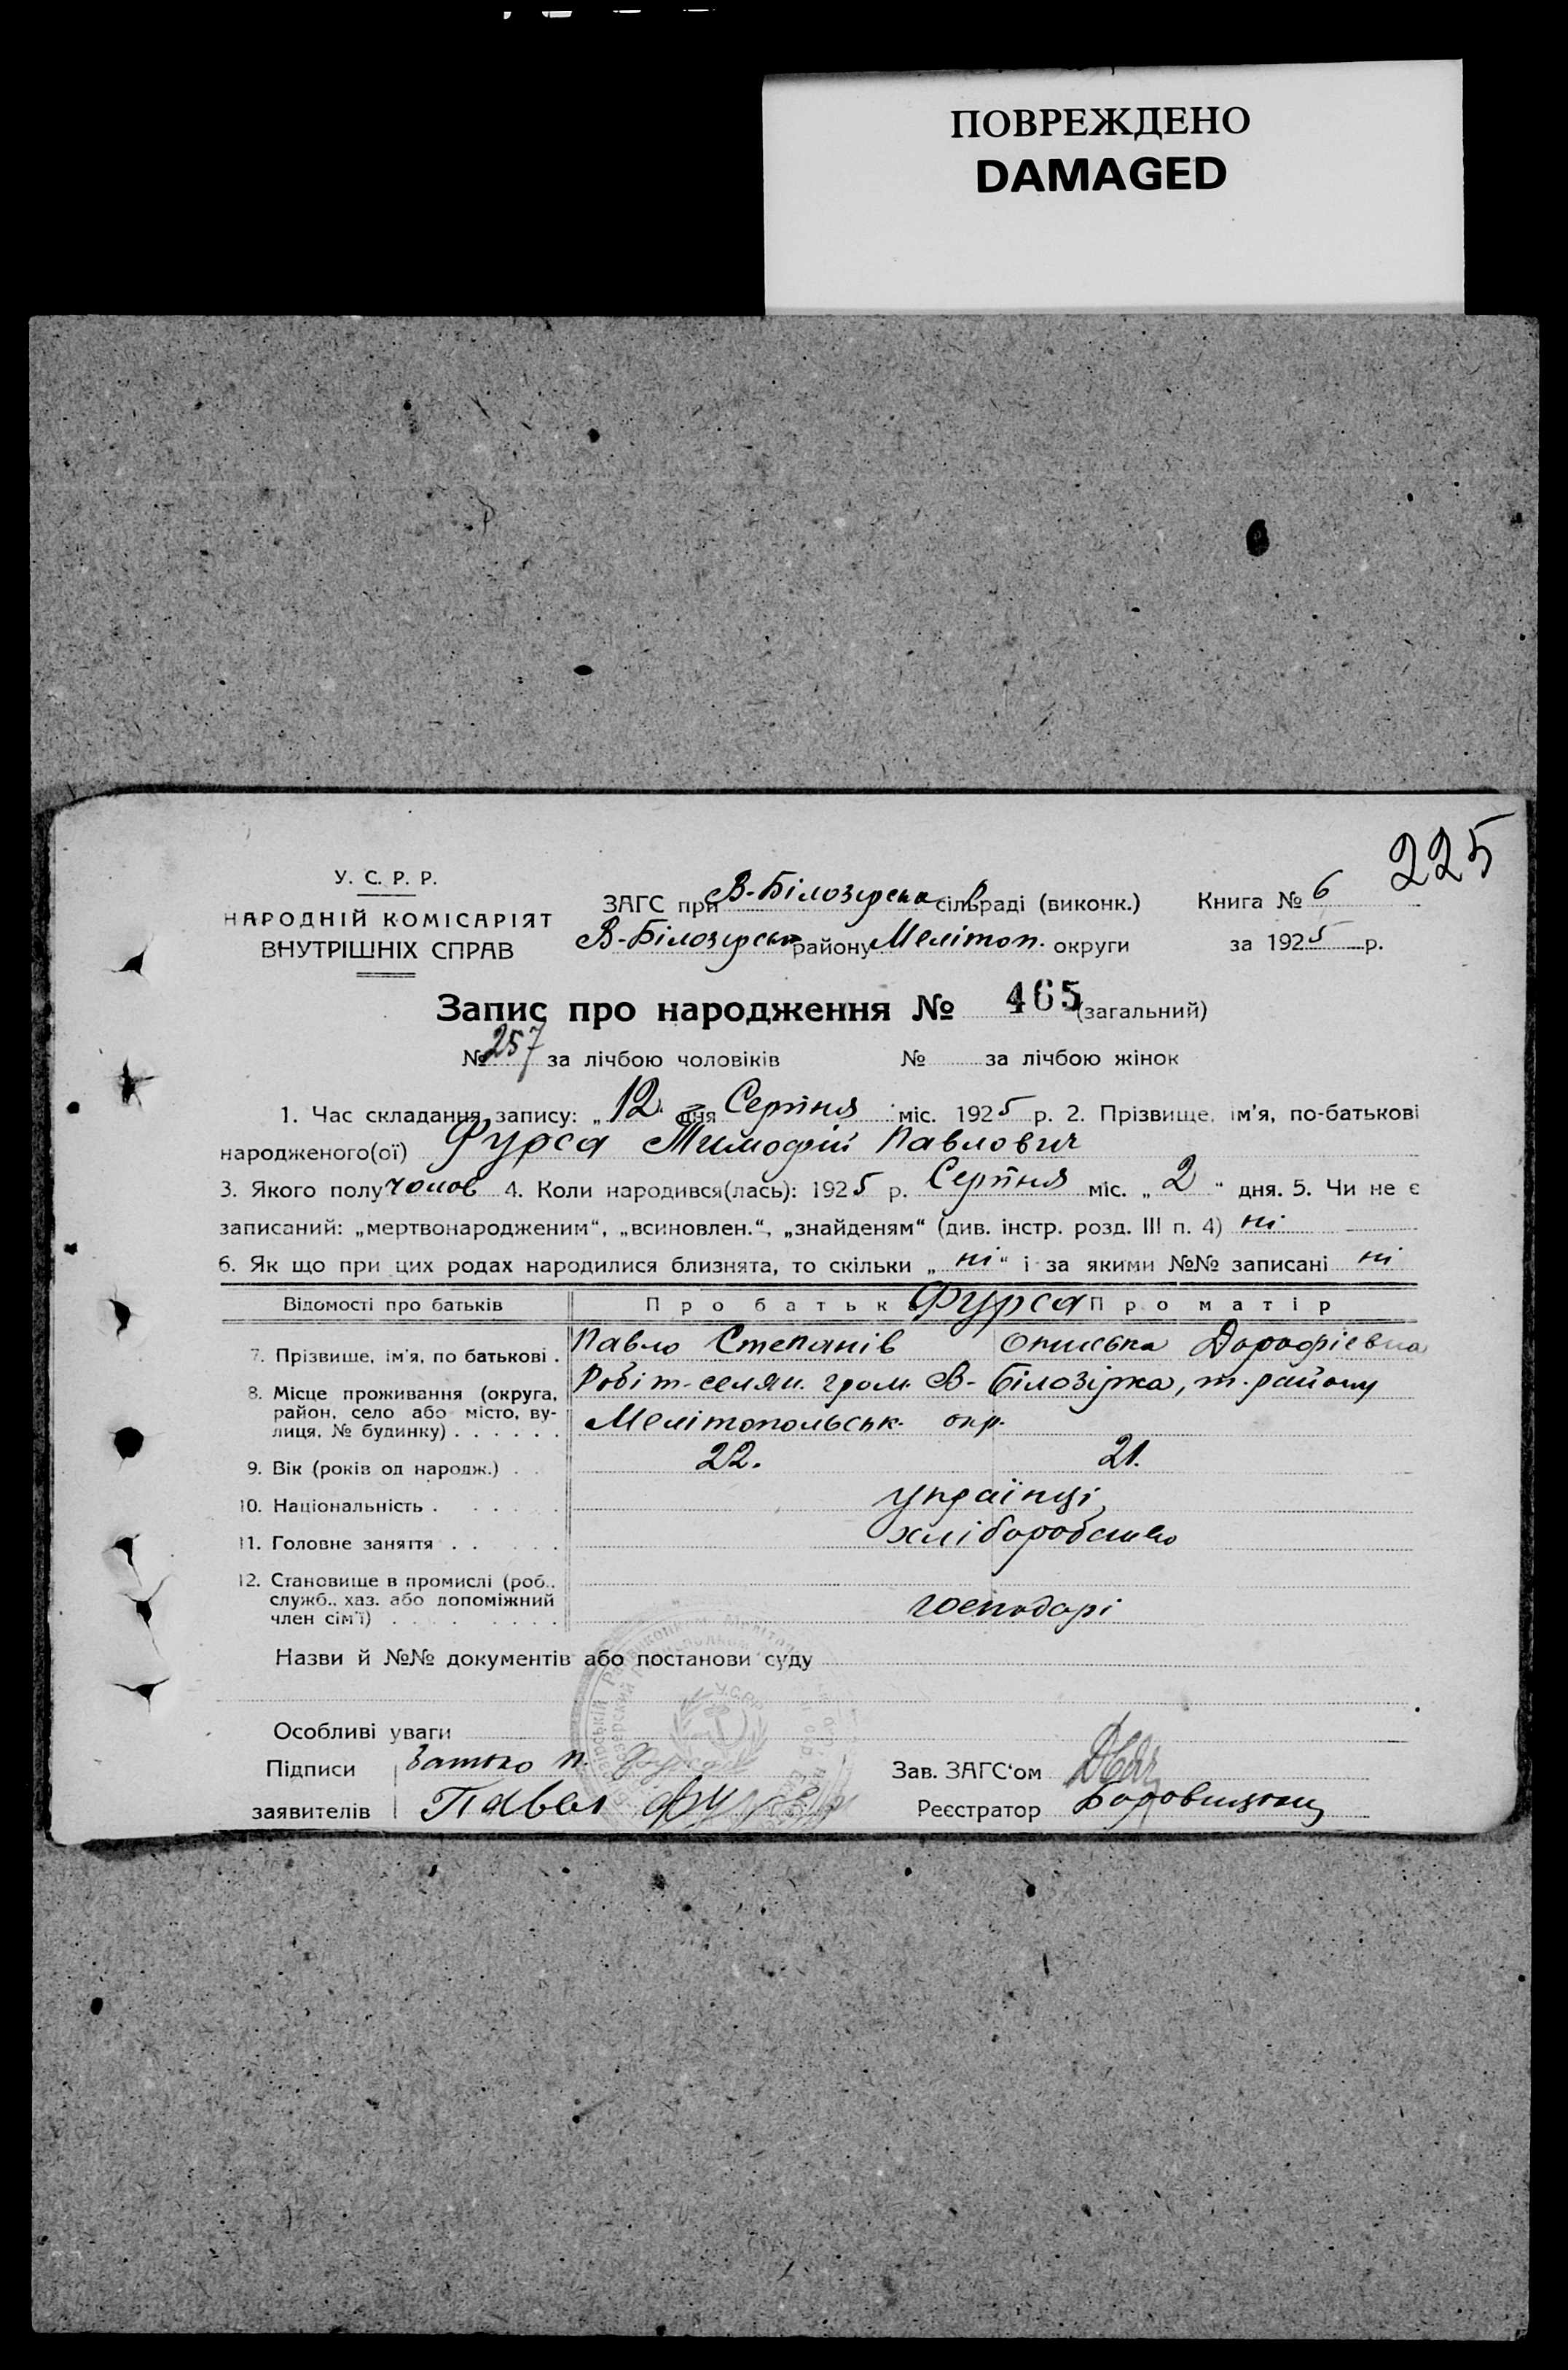 ПОВРЕЖДЕНО
DAMAGED
225
У. С. Р. Р.
НАРОДНІЙ КОМІСАРІЯТ
ВНУТРІШНІХ СПРАВ
ЗАГС при В-Білозирська сільраді (виконк.) Книга № 6
В-Білозирськ району Мелітоп. округи за 1925 р.
Запис про народження № 465 (загальний)
№ 257 за лічбою чоловіків № за лічбою жінок
1. Час складання запису: „12 дня Серпня міс. 1925 р. 2. Прізвище, ім'я, по-батькові
народженого(ої) Фурса Тимофій Павлович
3. Якого полу чолов 4. Коли народився(лась): 1925 р. Серпня міс. „2“ дня. 5. Чи не є
записаний: „мертвонародженим“, „всиновлен.“, „знайденям“ (див. інстр. розд. III п. 4) ні
6. Як що при цих родах народилися близнята, то скільки „ні“ і за якими №№ записані ні
Відомості про батьків Про батьк Фурса Про матір
7. Прізвище, ім'я, по батькові . Павло Степанів Дорофієвна
8. Місце проживання (округа, район, село або місто, вулиця, № будинку) . . . . . . Робіт-селян. гром. В-Білозірка, т. району
Мелітопольськ. окр.
9. Вік (років од народж.) . . 22. 21.
10. Національність . . . . . українці
11. Головне заняття . . . . . хліборобство
12. Становище в промислі (роб., служб., хаз. або допоміжний член сім'ї) . . . . . . господарі
Назви й №№ документів або постанови суду
У.С.Р.Р.
Особливі уваги
Підписи Батько П. Фурса Зав. ЗАГС'ом
заявителів Павел Фурса Реєстратор